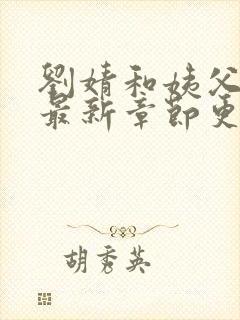 劉婧和姨父
最新章節更
胡秀英